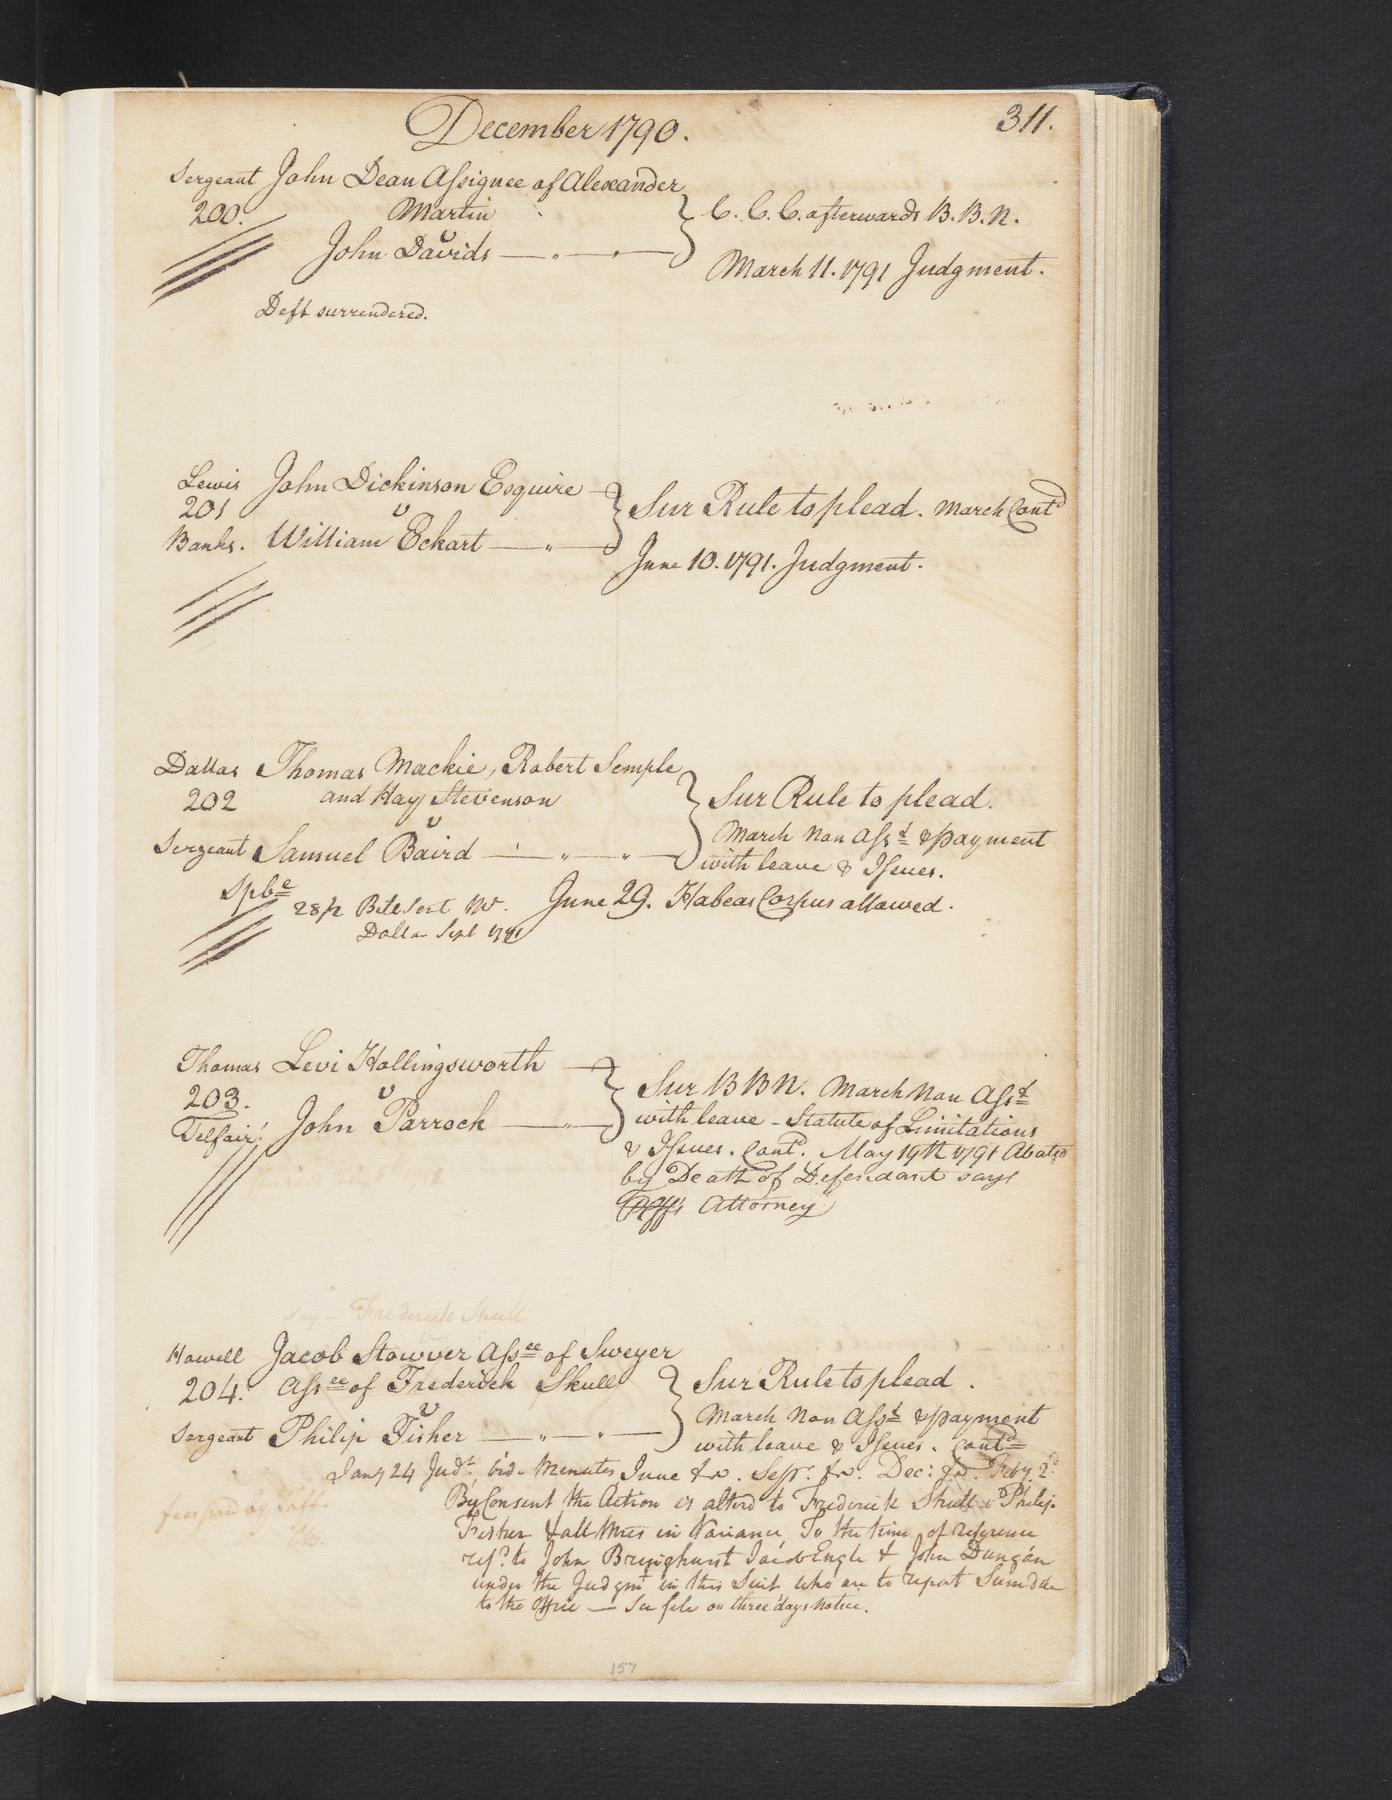 December 1790.
311.
Sergeant John Dean Assignee of Alexander
200. Martin
v
John Davids
C. C. C. afterwards B. B. N.
March 11. 1791 Judgment.
Deft surrendered.
Lewis John Dickinson Esquire
201 v
Banks. William Eckart
Sur Rule to plead. March Contd
June 10. 1791. Judgment.
Dallas Thomas Mackie, Robert Semple
202 and Hay Stevenson
v
Sergeant Samuel Baird
Sur Rule to plead.
March Non Asst & payment
with leave & Issues.
Spbe
June 29. Habeas Corpus allowed.
Sept 1791
Thomas Levi Hollingsworth
203. v
Telfair. John Parrock
Sur B B N. March Non Asst
with leave - Statute of Limitations
& Issues. Contd. May 19th 1791 Abated
by Death of Defendant says
Attorney
say - Frederick Shull
Howell Jacob Stowver Assee of Sweyer
204. Assee of Frederick Skull
v
Sergeant Philip Fisher
Sur Rule to plead.
March Non Asst & payment
with leave & Issues. Contd
Jany 24 Judt. Minutes June &c. Sepr. &c. Dec: &c. Feby. 2d
By Consent the Action is alterd to Frederick Shull v Philip
Fisher & all in Variance To the time of reference
refd. to John Bringhurst Jacob Engle & John Dungan
under the Judgmt in this Suit who are to report Sum due
to the Office — See file on three days notice.
157